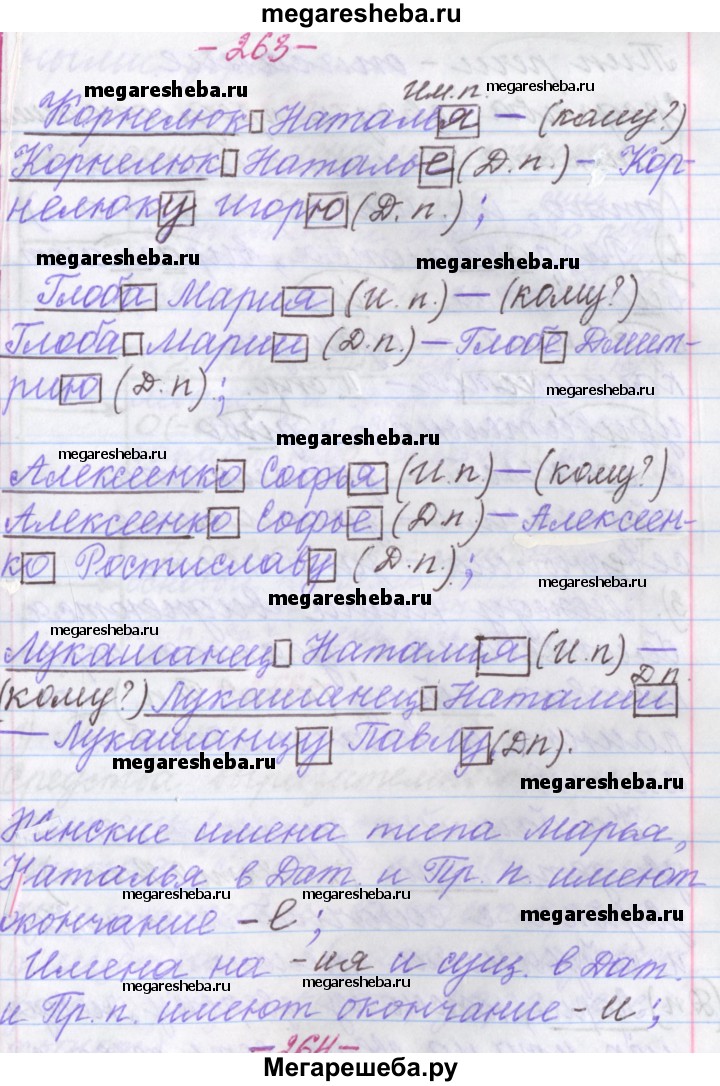 megaresheba.ru
-263-
megaresheba.ru Им.п. megaresheba.ru
Корнелюк Наталья — (кому?)
Корнелюк Наталье (Д.п.) – Кор-
нелюку Игорю (Д.п.);
megaresheba.ru megaresheba.ru
Глоба Мария (И.п.) — (кому?)
Глоба Марии (Д.п.) — Глобе Дмит-
рию (Д.п);
megaresheba.ru
megaresheba.ru megaresheba.ru
Алексеенко Софья (И.п) — (кому?)
Алексеенко Софье (Д.п) — Алексеен-
ко Ростиславу (Д.п.);
megaresheba.ru
megaresheba.ru
megaresheba.ru
Лукашанец Наталия (И.п) —
(кому?) Лукашанец Наталии Д.п
— Лукашанцу Павлу (Дп).
megaresheba.ru
megaresheba.ru
Женские имена типа Марья,
Наталья в Дат. и Пр. п. имеют
megaresheba.ru megaresheba.ru
окончание -е;
megaresheba.ru
Имена на -ия и сущ. в Дат.
megaresheba.ru megaresheba.ru
и Пр. п. имеют окончание -и;
-264-
Мегарешеба.ру